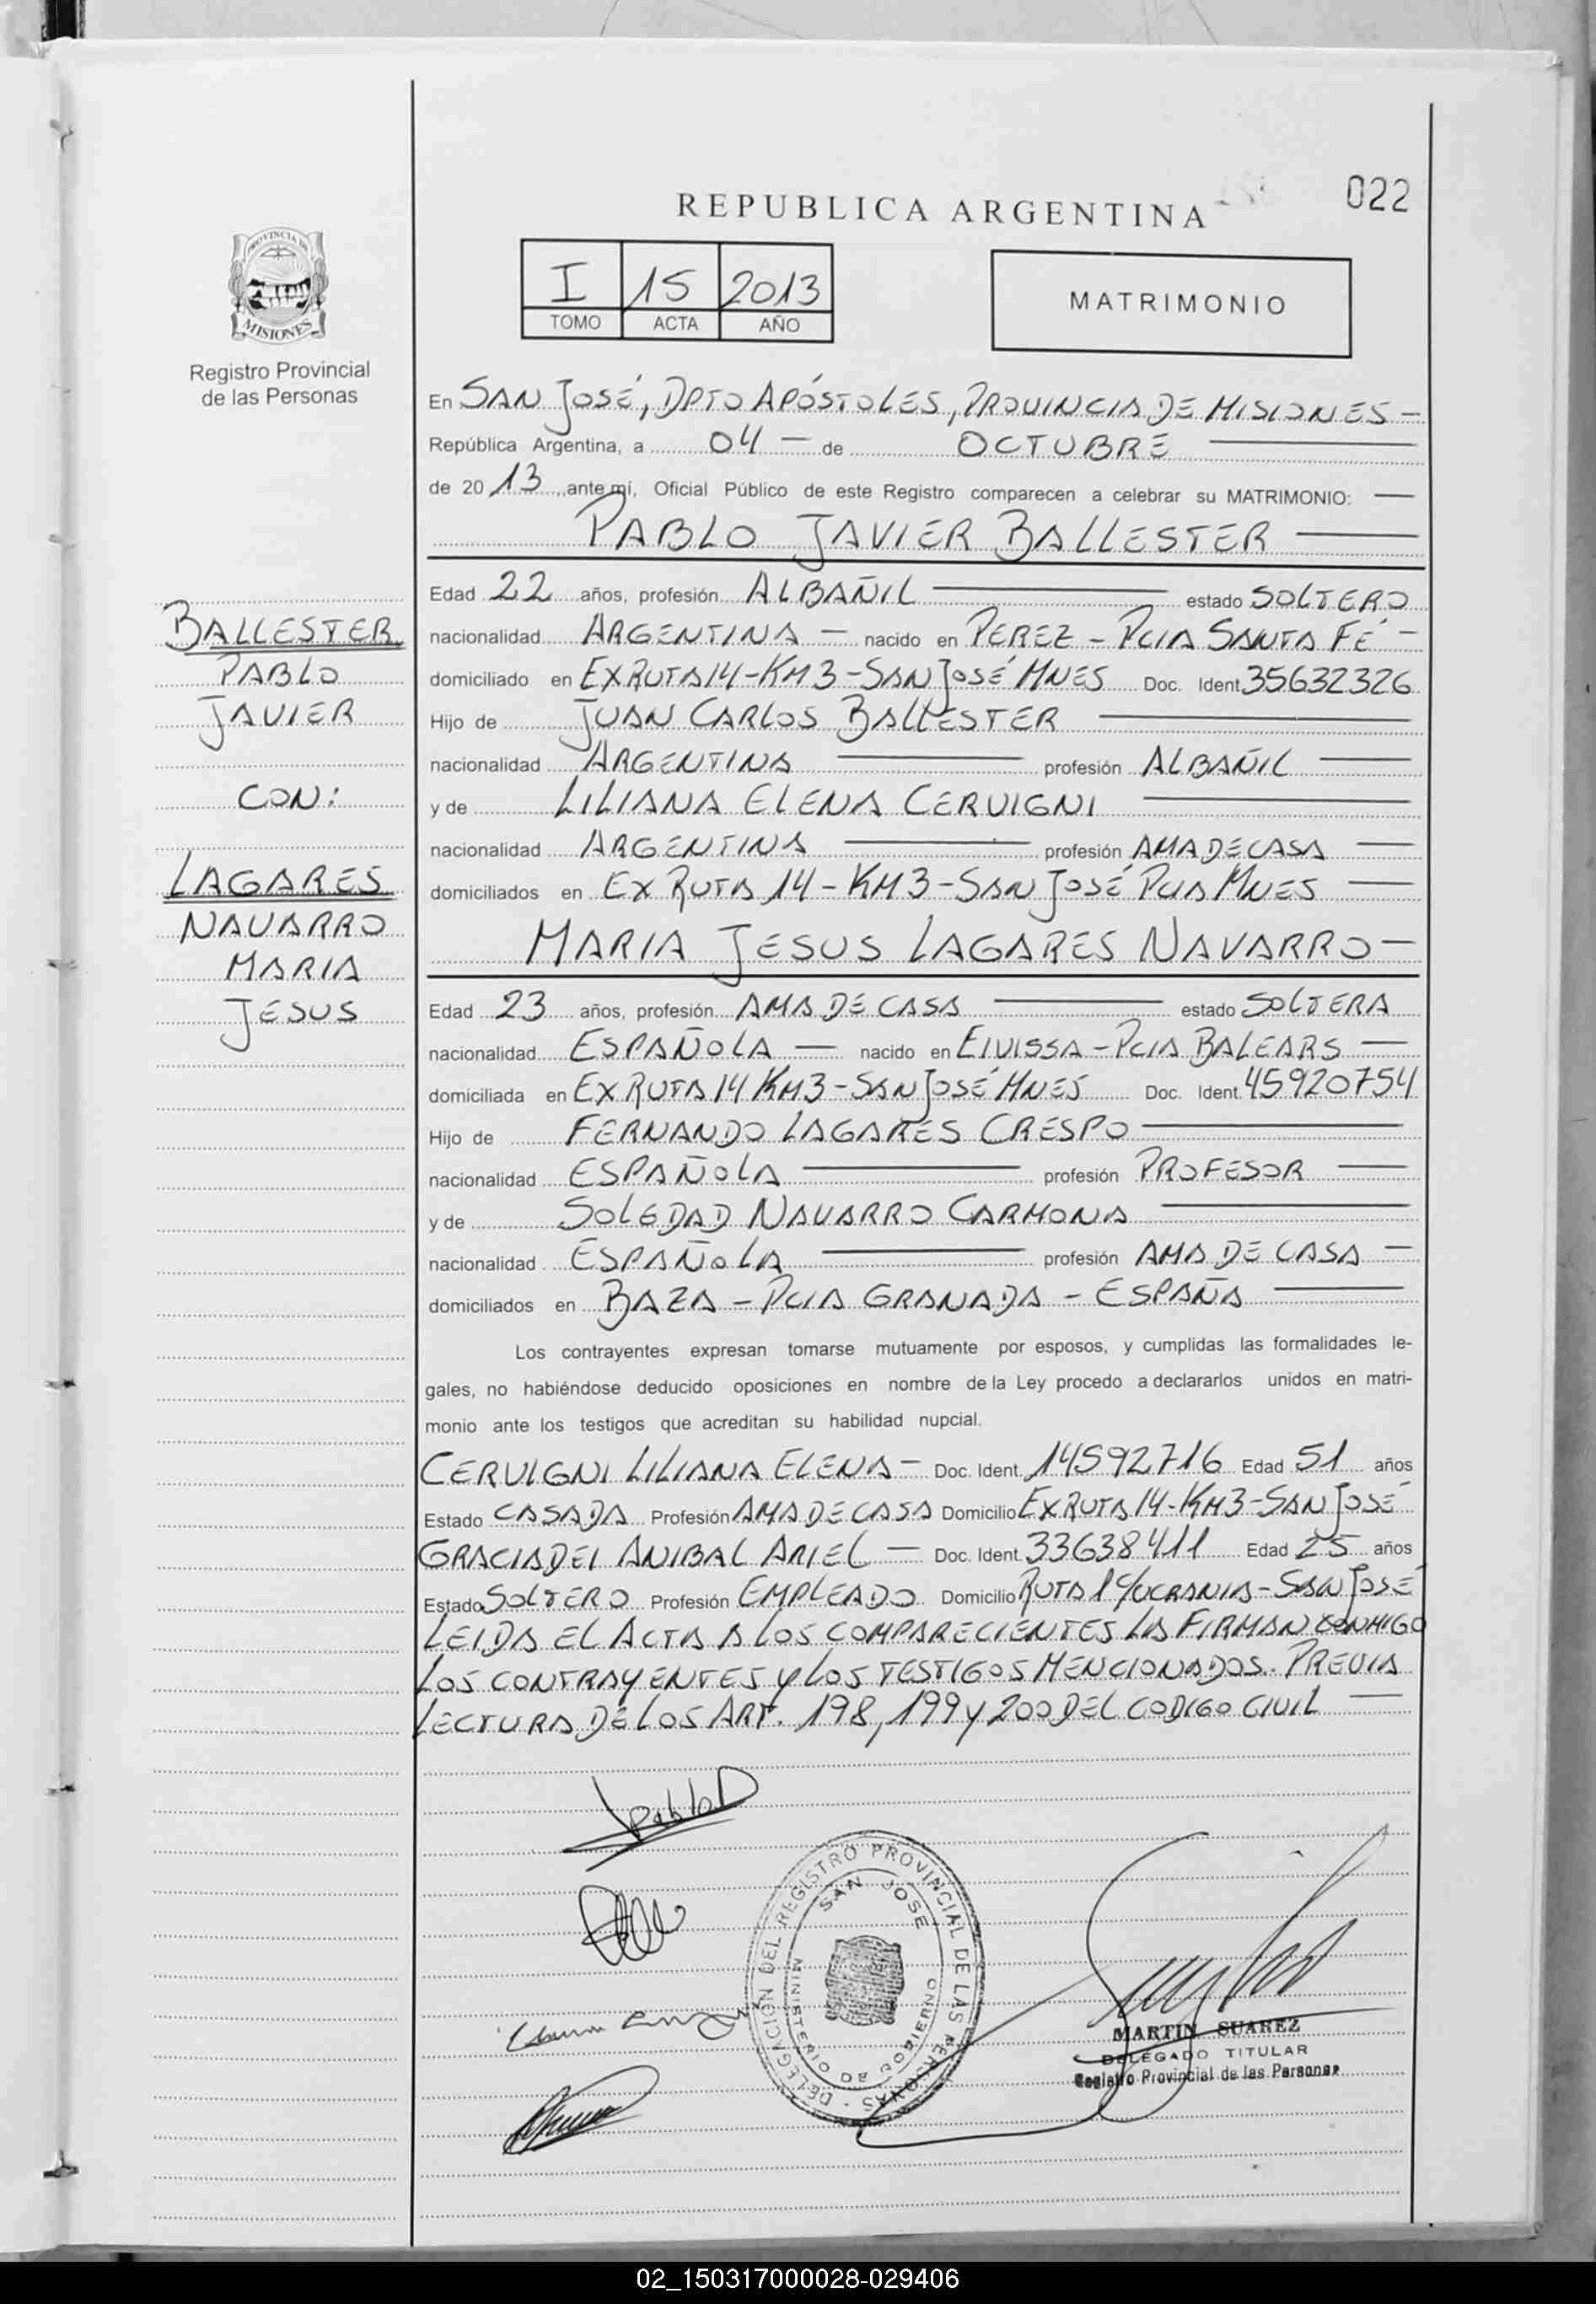 022
REPUBLICA ARGENTINA
PROVINCIA DE
MISIONES
Registro Provincial
de las Personas
I 15 2013
TOMO ACTA AÑO
MATRIMONIO
En SAN JOSÉ, DPTO APÓSTOLES, PROVINCIA DE MISIONES -
República Argentina, a 04 - de OCTUBRE
de 20 13 ante mí, Oficial Público de este Registro comparecen a celebrar su MATRIMONIO:
PABLO JAVIER BALLESTER
Edad 22 años, profesión ALBAÑIL estado SOLTERO
nacionalidad ARGENTINA - nacido en PEREZ - PCIA SANTA FÉ -
domiciliado en EX RUTA 14 - KM 3 - SAN JOSÉ MNES Doc. Ident 35632326
Hijo de JUAN CARLOS BALLESTER
nacionalidad ARGENTINA profesión ALBAÑIL
y de LILIANA ELENA CERVIGNI
nacionalidad ARGENTINA profesión AMA DE CASA
domiciliados en EX RUTA 14 - KM 3 - SAN JOSÉ PCIA MNES
MARIA JESUS LAGARES NAVARRO -
Edad 23 años, profesión AMA DE CASA estado SOLTERA
nacionalidad ESPAÑOLA - nacido en EIVISSA - PCIA BALEARS -
domiciliada en EX RUTA 14 KM3 - SAN JOSÉ MNES Doc. Ident. 45920754
Hijo de FERNANDO LAGARES CRESPO
nacionalidad ESPAÑOLA profesión PROFESOR
y de SOLEDAD NAVARRO CARMONA
nacionalidad ESPAÑOLA profesión AMA DE CASA -
domiciliados en BAZA - PCIA GRANADA - ESPAÑA
Los contrayentes expresan tomarse mutuamente por esposos, y cumplidas las formalidades le-
gales, no habiéndose deducido oposiciones en nombre de la Ley procedo a declararlos unidos en matri-
monio ante los testigos que acreditan su habilidad nupcial.
CERVIGNI LILIANA ELENA - Doc. Ident. 14592716 Edad 51 años
Estado CASADA Profesión AMA DE CASA Domicilio EX RUTA 14 - KM3 - SAN JOSÉ
GRACIADEI ANIBAL ARIEL - Doc. Ident. 33638411 Edad 25 años
Estado SOLTERO Profesión EMPLEADO Domicilio RUTA 1 Y UCRANIA - SAN JOSÉ
LEIDA EL ACTA A LOS COMPARECIENTES LA FIRMAN CONMIGO
LOS CONTRAYENTES Y LOS TESTIGOS MENCIONADOS. PREVIA
LECTURA DE LOS ART. 198, 199 Y 200 DEL CODIGO CIVIL
BALLESTER
PABLO
JAVIER
CON:
LAGARES
NAVARRO
MARIA
JESUS
Pablo
DELEGACION DEL REGISTRO PROVINCIAL DE LAS PERSONAS -
SAN JOSE
MINISTERIO DE GOBIERNO
MARTIN SUAREZ
DELEGADO TITULAR
Registro Provincial de las Personas
02_150317000028-029406